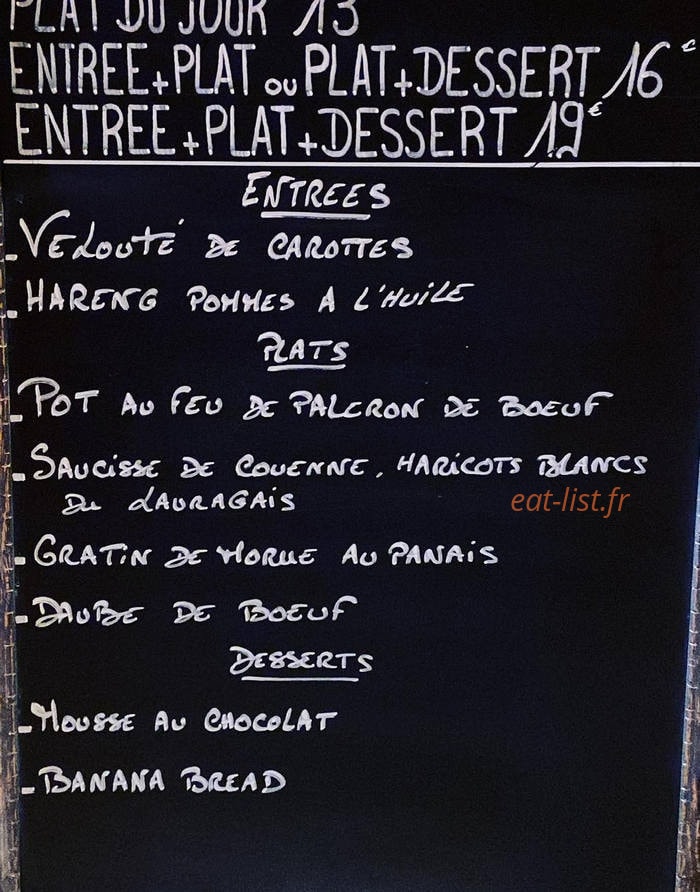 PLAT DU JOUR 13
ENTREE+PLAT ou PLAT+DESSERT 16€
ENTREE+PLAT+DESSERT 19€
ENTREES
-VELOUTÉ DE CAROTTES
-HARENG POMMES A L'HUILE
PLATS
-POT AU FEU DE PALERON DE BOEUF
-SAUCISSE DE COUENNE, HARICOTS BLANCS
DU LAURAGAIS
eat-list.fr
-GRATIN DE MORUE AU PANAIS
-DAUBE DE BOEUF
DESSERTS
-MOUSSE AU CHOCOLAT
-BANANA BREAD